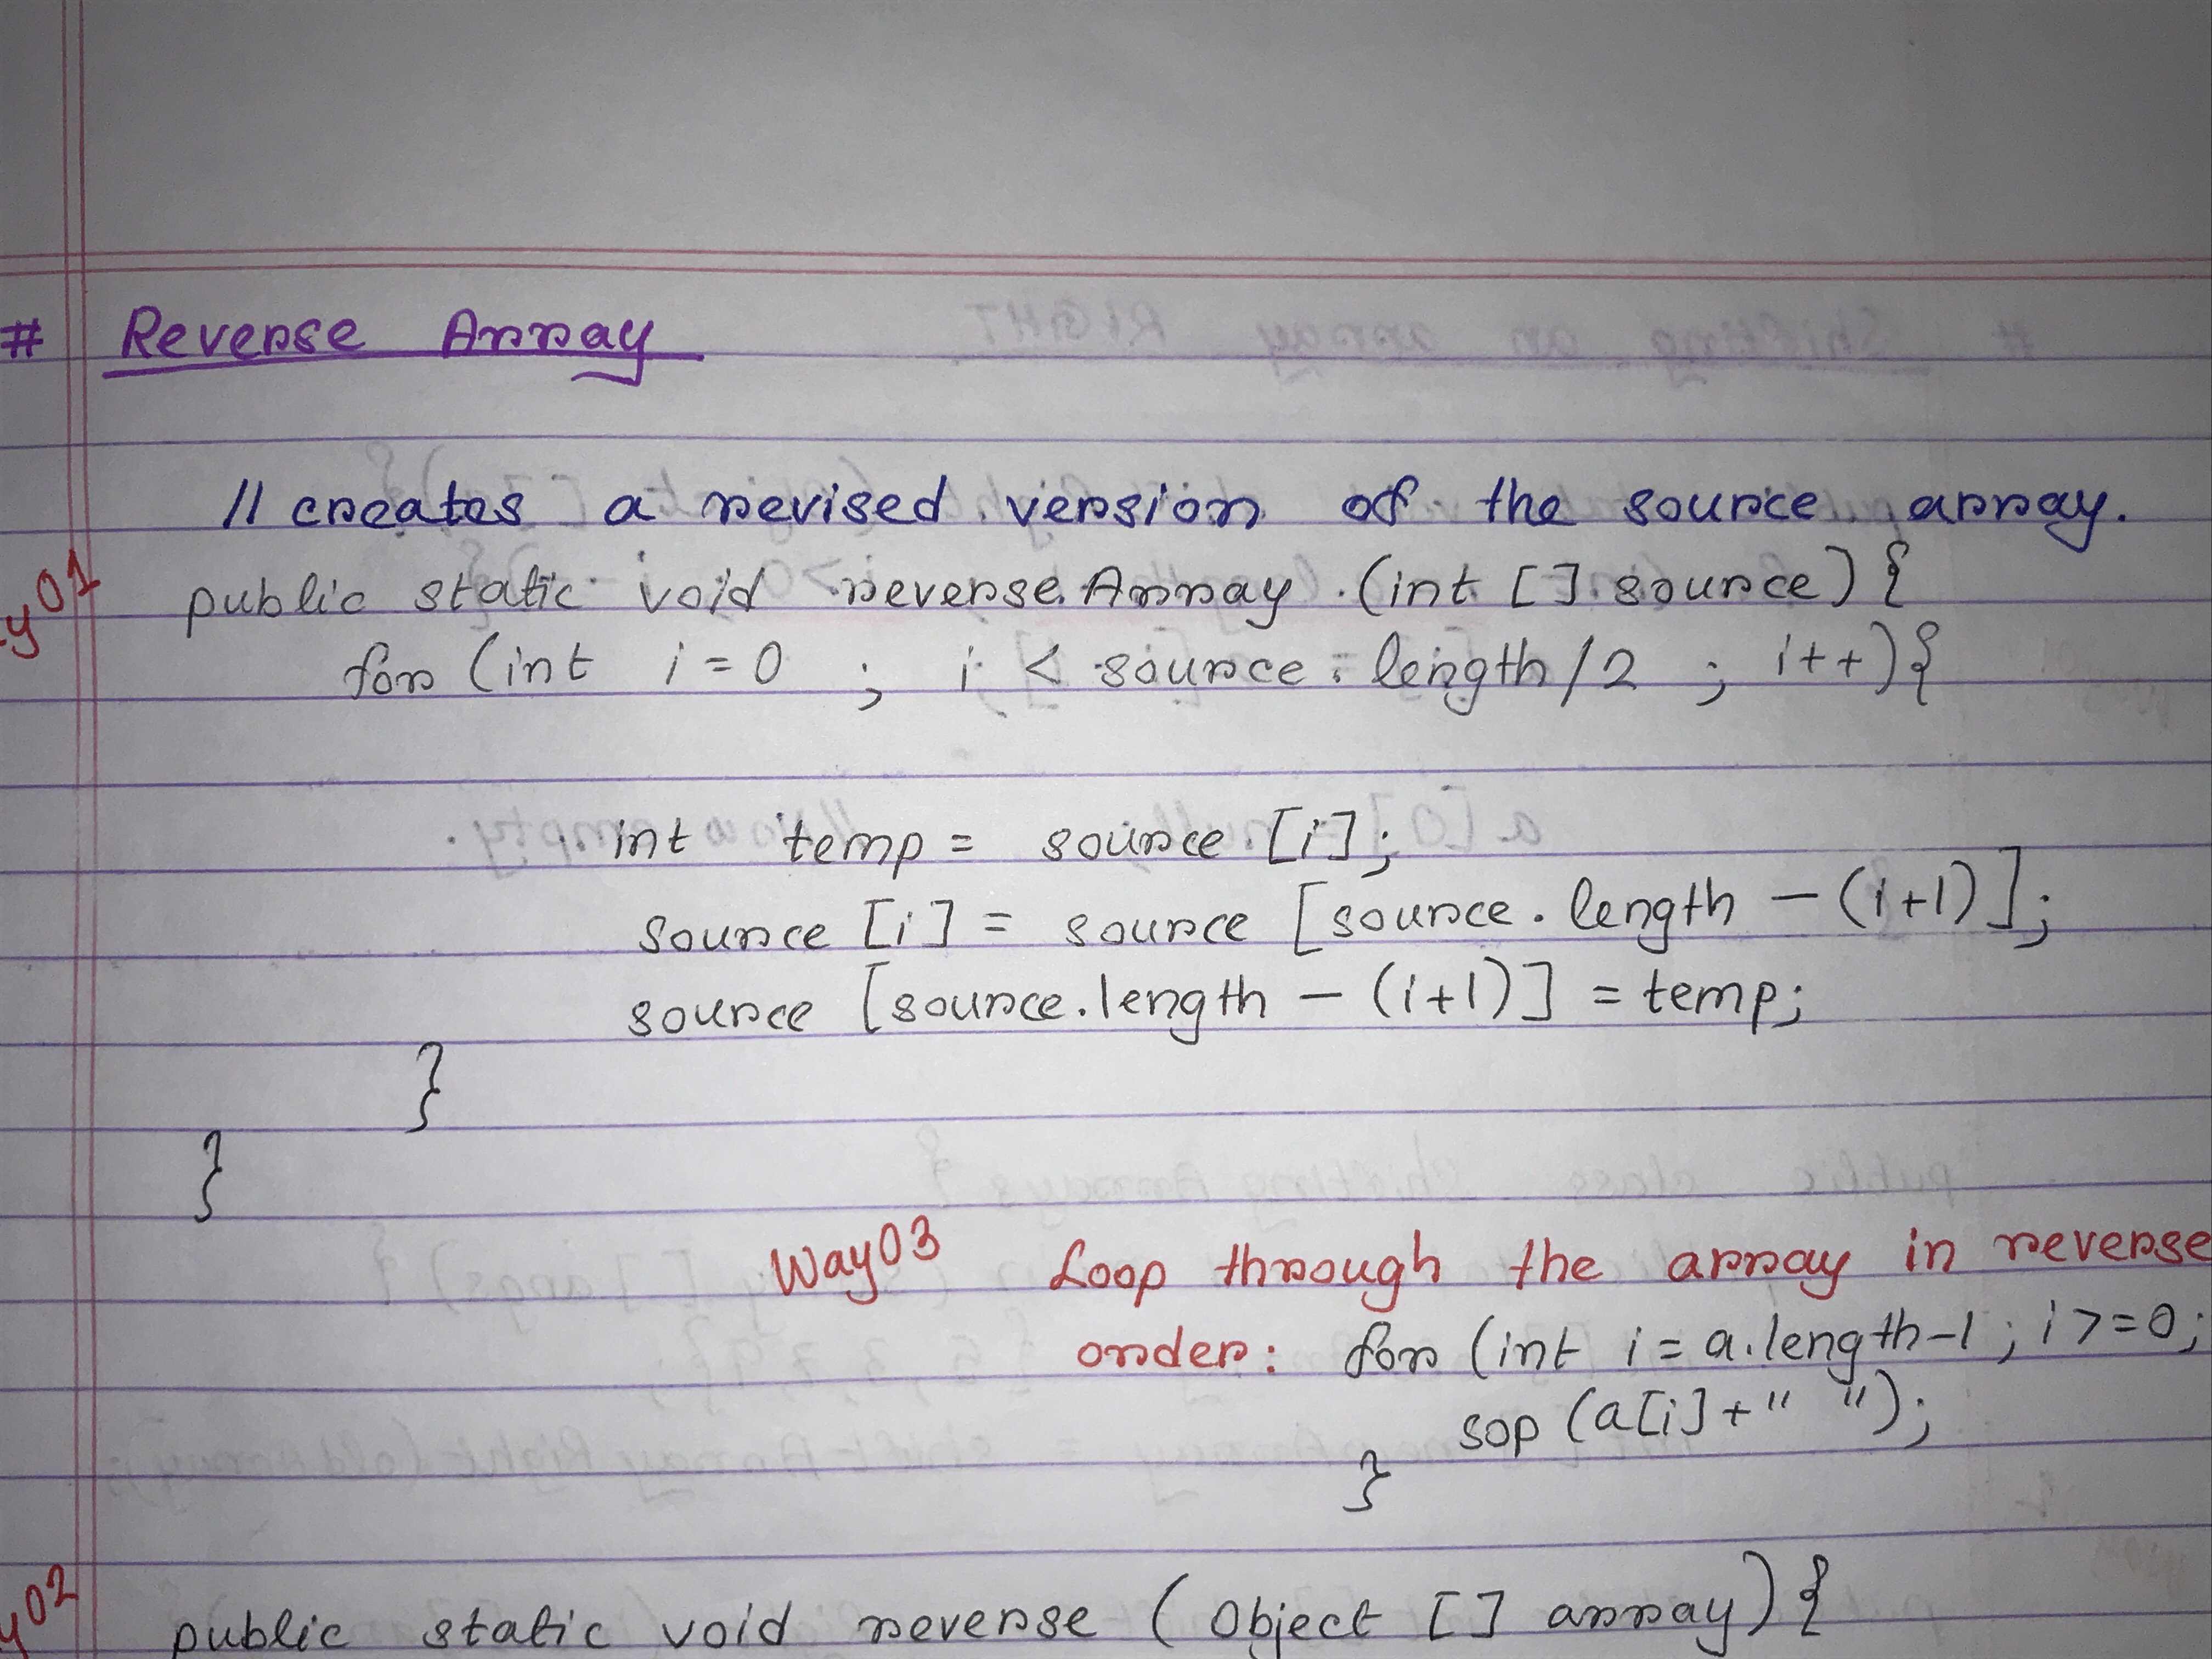 # Reverse Array
// creates a revised version of the source array.
y01 public static void reverseArray (int [] source) {
for (int i = 0 ; i < source.length/2 ; i++) {
int temp = source [i];
source [i] = source [source.length - (i+1)];
source [source.length - (i+1)] = temp;
}
}
Way03 Loop through the array in reverse
order: for (int i = a.length-1 ; i >= 0 ;
sop (a[i] + " ");
}
y02 public static void reverse (Object [] array) {